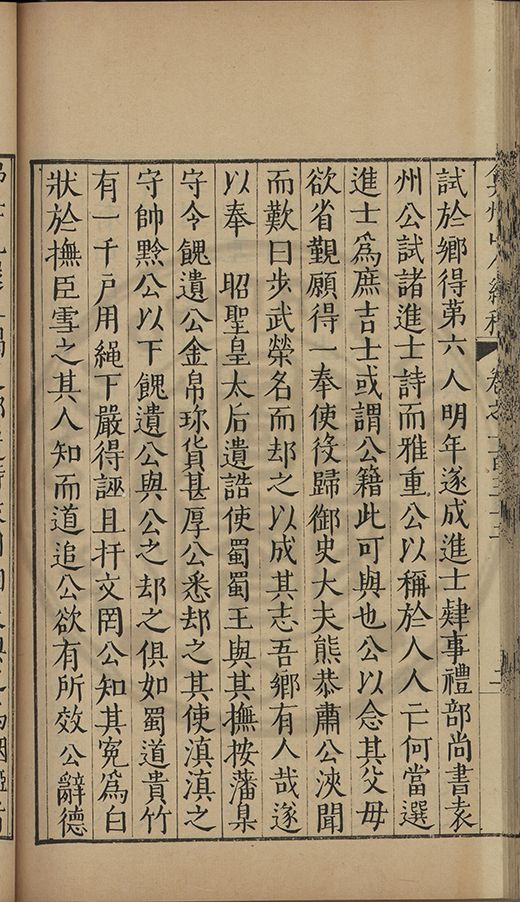 試於鄉得第六人明年遂成進士肄事禮部尚書袁
州公試諸進士詩而雅重公以稱於人人亡何當選
進士爲庶吉士或謂公籍此可與也公以念其父母
欲省覲願得一奉使役歸御史大夫熊恭肅公浹聞
而歎曰步武榮名而却之以成其志吾鄉有人哉遂
以奉　昭聖皇太后遺誥使蜀蜀王與其撫按藩臬
守令餽遺公金帛珎貨甚厚公悉却之其使滇滇之
守帥黔公以下餽遺公與公之却之俱如蜀道貴竹
有一千戶用繩下嚴得誣且扞文罔公知其寃爲白
狀於撫臣雪之其人知而道追公欲有所效公辭德